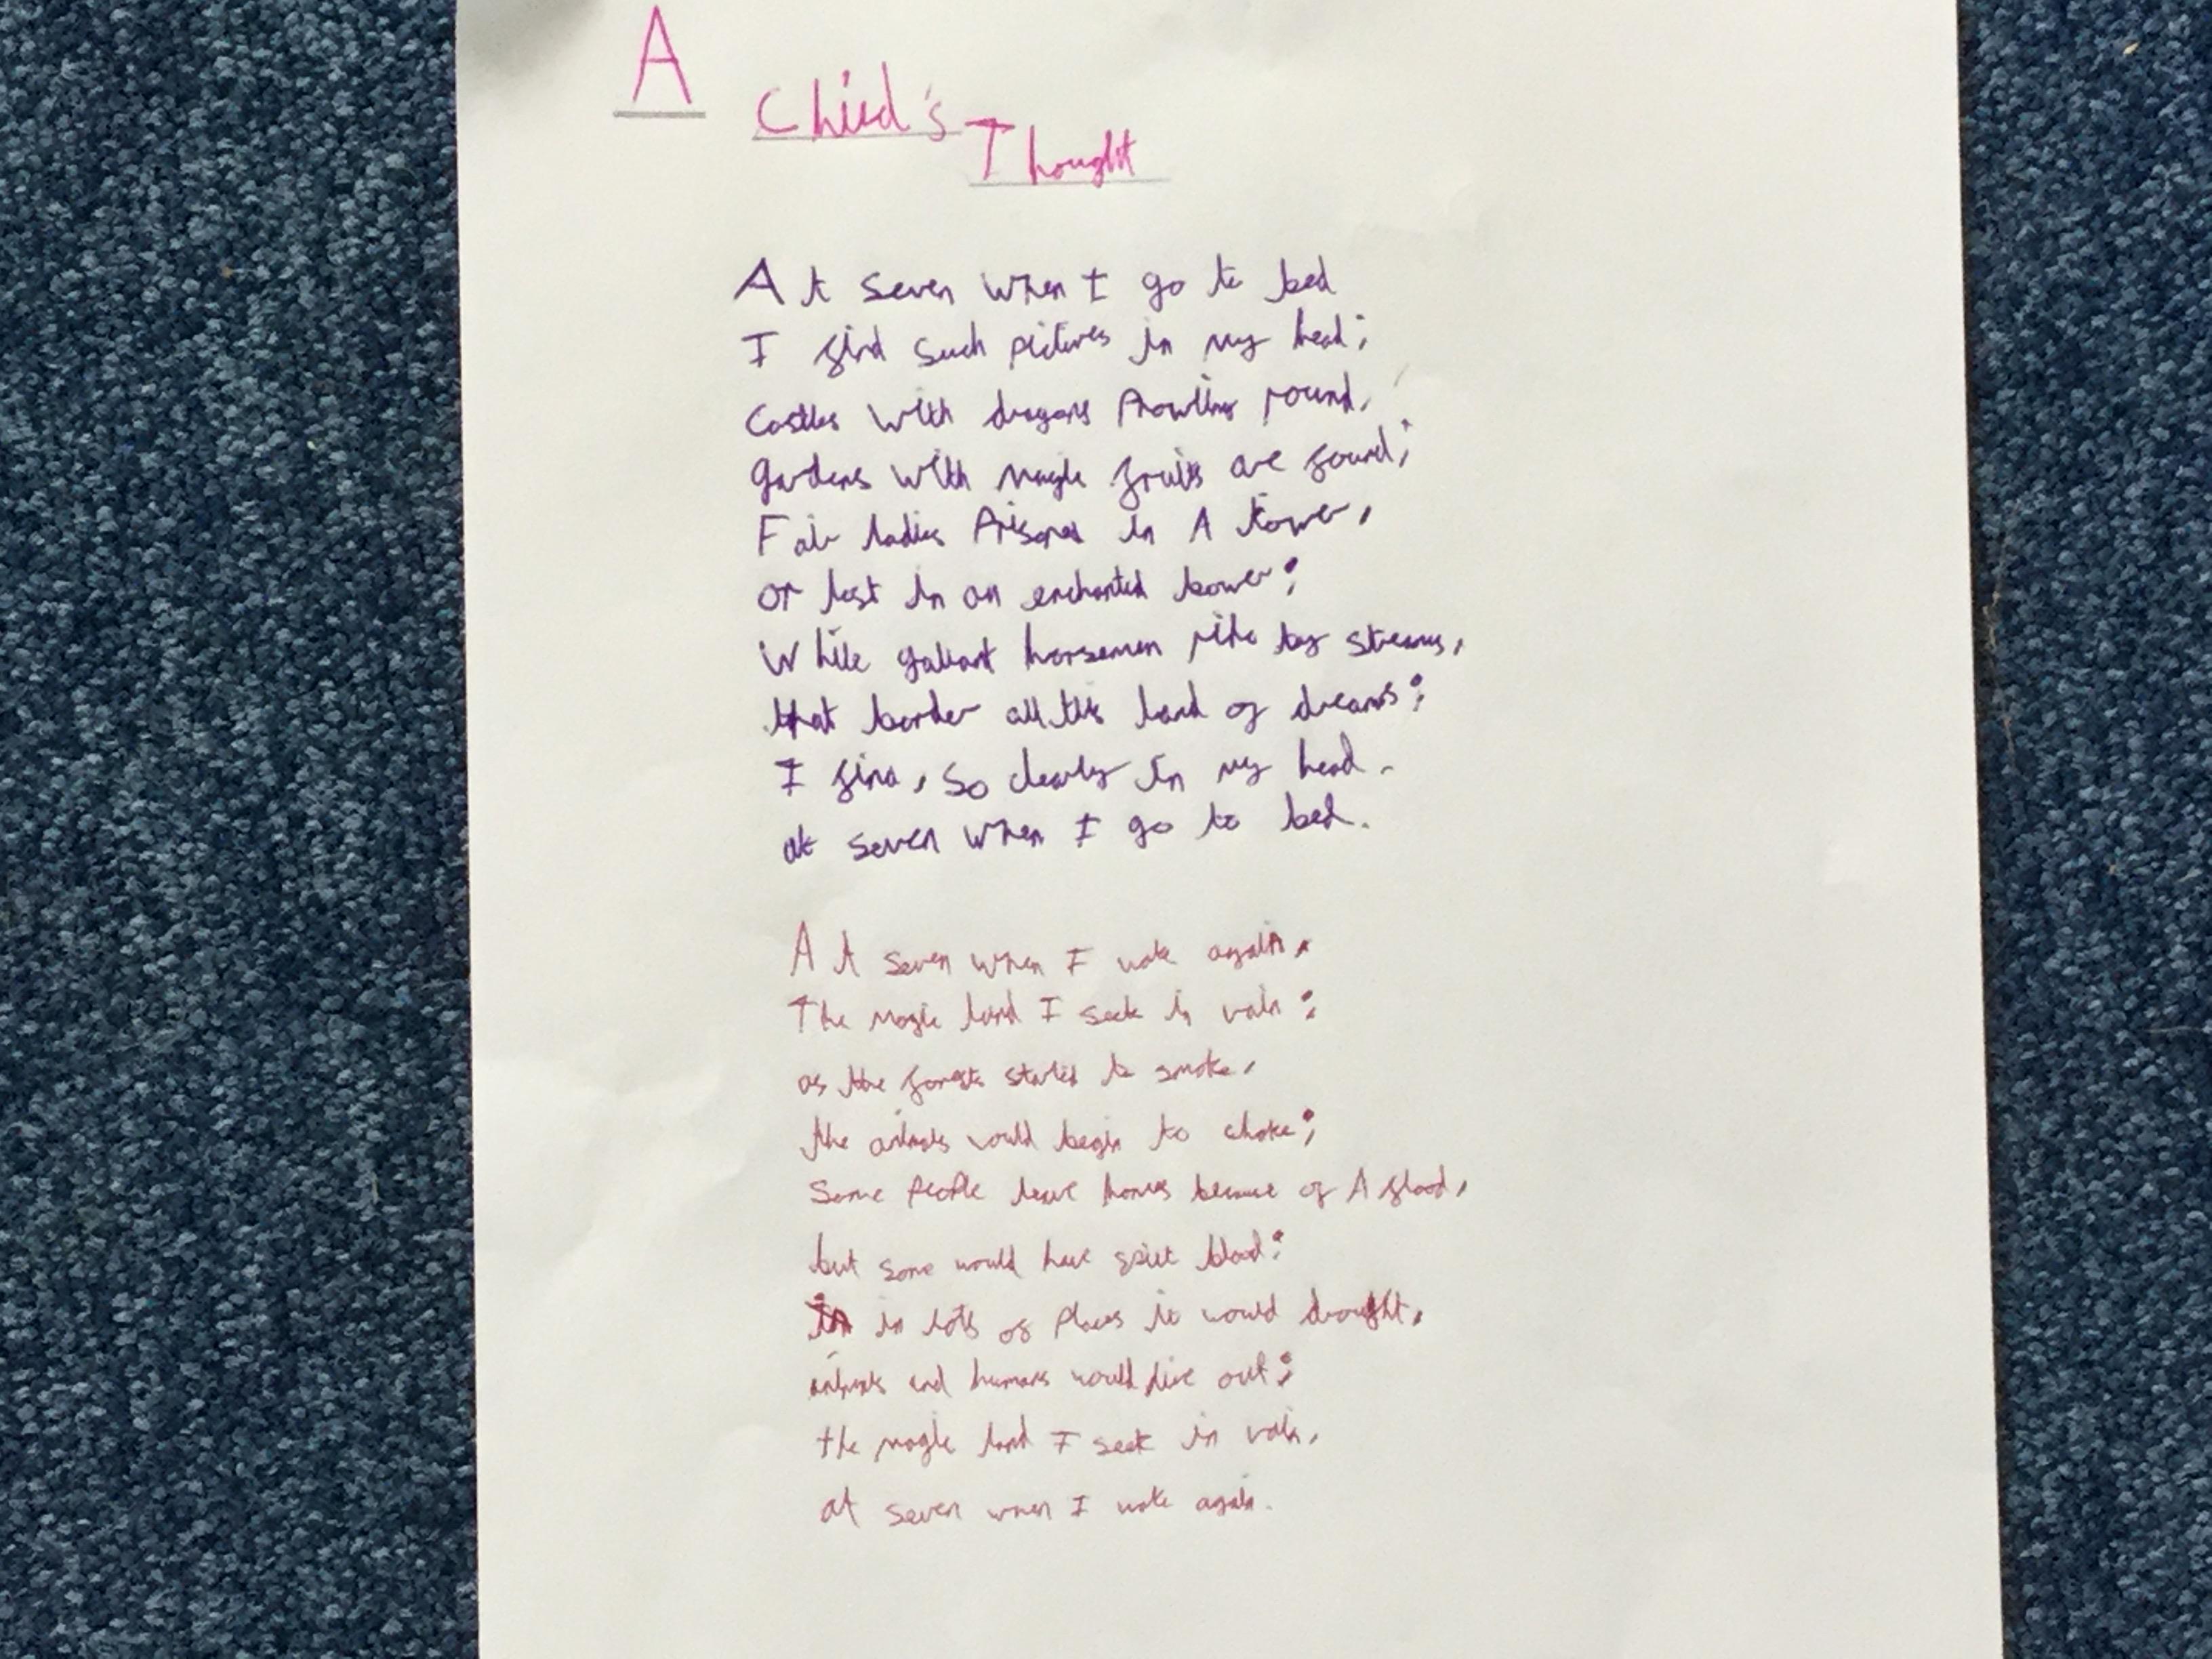 A
Child's
Thought
At seven when I go to bed
I find such pictures in my head;
Castles with dragons Prowling round,
gardens with magic fruits are found;
Fair ladies Prisoned in A tower,
or lost in an enchanted bower;
While gallant horsemen ride by streams,
that border all this land of dreams;
I find, so clearly in my head.
at seven when I go to bed.
At seven when I wake again,
The magic land I seek in vain;
as the forests started to smoke,
the animals would begin to choke;
Some People leave homes because of A flood,
but some would have spilt blood;
in lots of Places it would drought,
animals and humans would out;
the magic land I seek in vain,
at seven when I wake again.